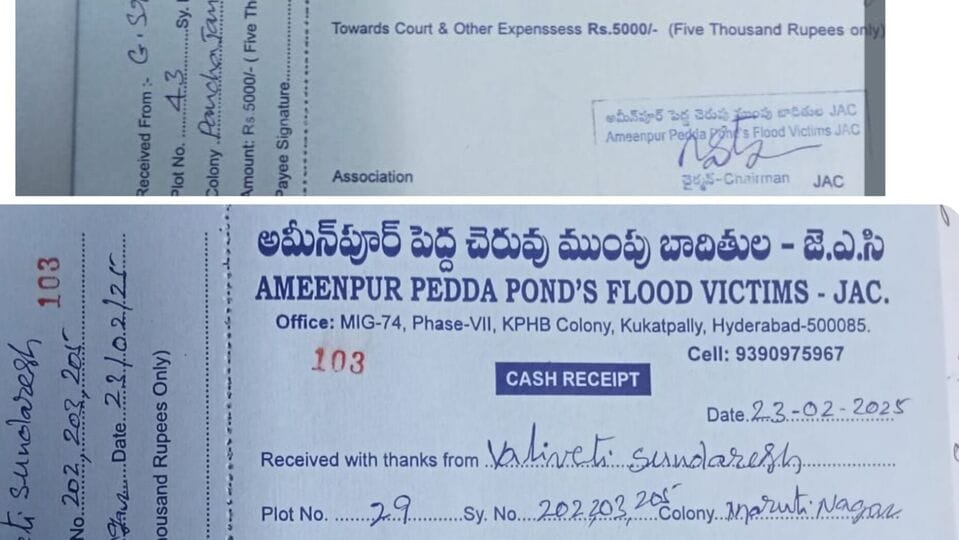 Towards Court & Other Expenssess Rs.5000/- (Five Thousand Rupees only)
అమీన్‌పూర్ పెద్ద చెరువు ముంపు బాదితుల JAC
Ameenpur Pedda Pond's Flood Victims JAC
చైర్మన్-Chairman JAC
Association
Received From :- G.
Plot No. 43 Sy.
Colony
Amount: Rs 5000/- ( Five Th
Payee Signature
అమీన్‌పూర్ పెద్ద చెరువు ముంపు బాదితుల - జె.ఎ.సి
AMEENPUR PEDDA POND'S FLOOD VICTIMS - JAC.
Office: MIG-74, Phase-VII, KPHB Colony, Kukatpally, Hyderabad-500085.
Cell: 9390975967
103
CASH RECEIPT
Date.23-02-2025
Received with thanks from Valiveti Sundaresh
Plot No. 29 Sy. No. 202,203,205 Colony Maruti Nagar
103
eti Sundaresh
No. 202,203,205
Date. 23/02/25
housand Rupees Only)